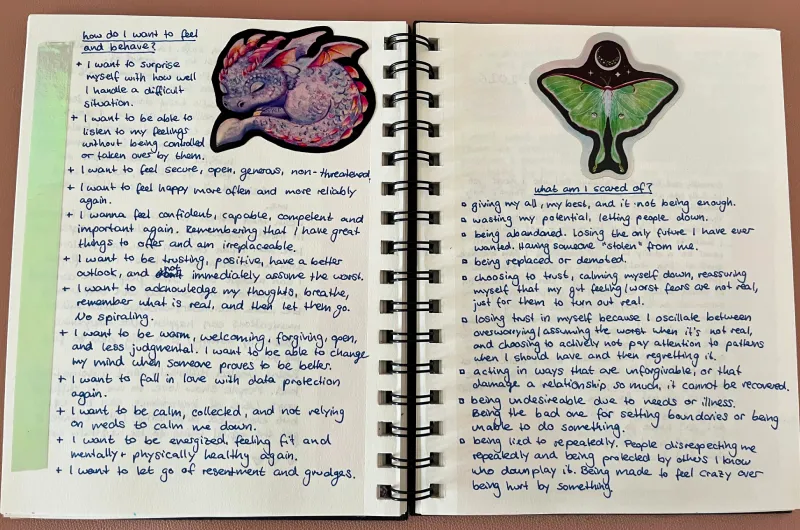 how do I want to feel
and behave?
+ I want to surprise
myself with how well
I handle a difficult
situation.
+ I want to be able to
listen to my feelings
without being controlled
or taken over by them.
+ I want to feel secure, open, generous, non-threatened,
+ I want to feel happy more often and more reliably
again.
+ I wanna feel confident, capable, competent and
important again. Remembering that I have great
things to offer and am irreplaceable.
+ I want to be trusting, positive, have a better
outlook, and not immediately assume the worst.
+ I want to acknowledge my thoughts, breathe,
remember what is real, and then let them go.
No spiraling.
+ I want to be warm, welcoming, forgiving, open,
and less judgmental. I want to be able to change
my mind when someone proves to be better.
+ I want to fall in love with data protection
again.
+ I want to be calm, collected, and not relying
on meds to calm me down.
+ I want to be energized, feeling fit and
mentally + physically healthy again.
+ I want to let go of resentment and grudges.
what am I scared of?
giving my all, my best, and it not being enough.
wasting my potential, letting people down.
being abandoned. Losing the only future I have ever
wanted. Having someone "stolen" from me.
being replaced or demoted.
choosing to trust, calming myself down, reassuring
myself that my gut feeling/worst fears are not real,
just for them to turn out real.
losing trust in myself because I oscillate between
overworrying/assuming the worst when it's not real,
and choosing to actively not pay attention to patterns
when I should have and then regretting it.
acting in ways that are unforgivable, or that
damage a relationship so much, it cannot be recovered.
being undesireable due to needs or illness.
Being the bad one for setting boundaries or being
unable to do something.
being lied to repeatedly. People disrespecting me
repeatedly and being protected by others I know
who downplay it. Being made to feel crazy over
being hurt by something.